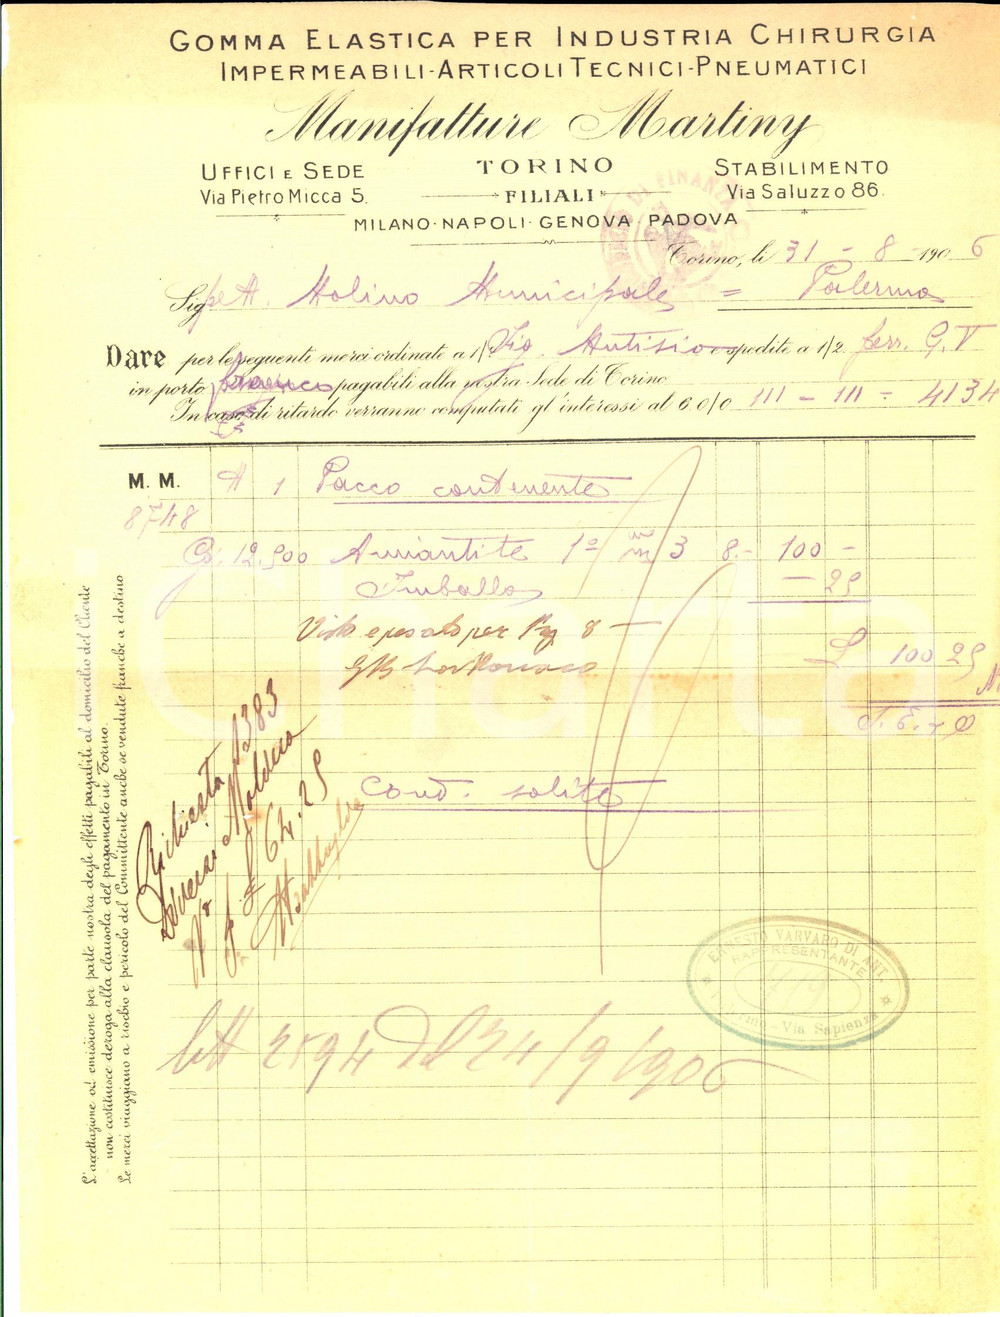 GOMMA ELASTICA PER INDUSTRIA CHIRURGIA
IMPERMEABILI-ARTICOLI TECNICI-PNEUMATICI
Manifatture Martiny
UFFICI E SEDE
Via Pietro Micca 5.
TORINO
FILIALI
MILANO-NAPOLI-GENOVA-PADOVA
STABILIMENTO
Via Saluzzo 86.
Torino, li 31 - 8 - 1906
Sig. Molino Municipale = Palermo
Dare per le seguenti merci ordinate a 1/2 e spedite a 1/2 ferr. G. V
in porto franco pagabili alla nostra Sede di Torino
In caso di ritardo verranno computati gl'interessi al 6 0/0 III - III - 4134
M. M. # 1 Pacco contenente
8748
G. 12.500 Amiantite 1º m/m 3 8.- 100 -
Imballo - 25
Visto e pesato per Kg 8
L 100 25
S. E. & O
Cond. solite
Richiesta N 383
64.25
2594 del 24/9/1906
ERNESTO VARVARO DI ANT.
RAPPRESENTANTE
Palermo - Via Sapienza
L'accettazione od emissione per parte nostra degli effetti pagabili al domicilio del Cliente
non costituisce deroga alla clausola del pagamento in Torino.
Le merci viaggiano a rischio e pericolo del Committente anche se vendute franche a destino